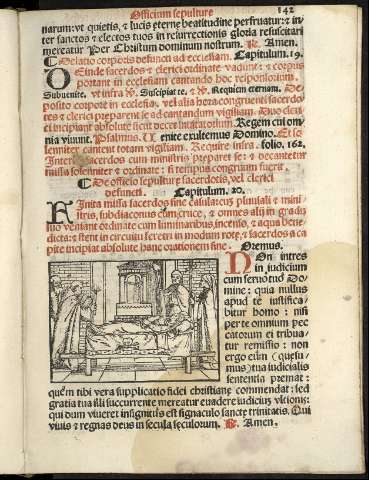 Officium sepulture 142
narum: vt quietis, & lucis eterne beatitudine perfruatur: & in
ter sanctos & electos tuos in resurrectionis gloria resuscitari
mereatur Per Christum dominum nostrum. ℟. Amen.
☾ Delatio corporis defuncti ad ecclesiam. Capitulum. 19.
DEinde sacerdos & clerici ordinate vadunt: & corpus
portant in ecclesiam cantando hoc responsorium.
Subuenite. vt infra ℣. Suscipiat te. & ℣. Requiem eternam. De
posito corpore in ecclesia, vel alia hora congruenti sacerdo
tes & clerici preparent se ad cantandum vigiliam. Duo cleri
ci incipiant absolute sicut decet Inuitatorium Regem cui om
nia viuunt. Psalmus. Uenite exultemus Domino. Et so
lenniter cantent totam vigiliam. Require infra. folio. 162.
Interim sacerdos cum ministris preparet se: & decantetur
missa solenniter & ordinate: si tempus congruum fuerit.
☾ De officio sepulture sacerdotis, vel clerici
defuncti. Capitulum. 20.
FInita missa sacerdos sine casula: cum pluuiali & mini
stris, subdiaconus cum cruce, & omnes alij in gradu
suo veniant ordinate cum luminaribus, incenso, & aqua bene
dicta: & stent in circuitu feretri in modum rote, & sacerdos a ca
pite incipiat absolute hanc orationem sine. Oremus.
NOn intres
in iudicium
cum seruo tuo Do
mine: quia nullus
apud te iustifica
bitur homo: nisi
per te omnium pec
catorum ei tribua
tur remissio: non
ergo eum (quesu
mus) tua iudicialis
sententia premat:
quem tibi vera supplicatio fidei christiane commendat: sed
gratia tua illi succurrente mereatur euadere iudicium vltionis:
qui dum viueret insignitus est signaculo sancte trinitatis. Qui
viuis & regnas deus in secula seculorum. ℟. Amen.